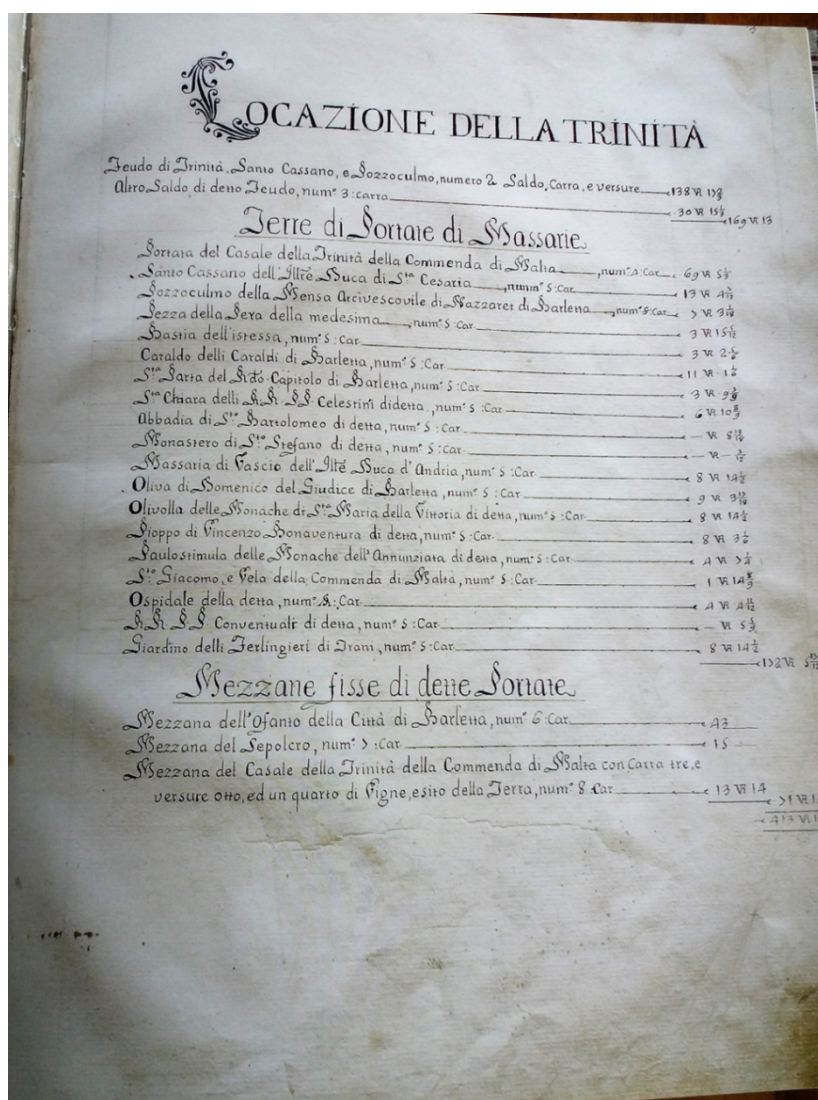 LOCAZIONE DELLA TRINITÀ
Feudo di Trinità, Santo Cassano, e Pozzoculmo, numero 2 Saldo, Carra, e versure 138 VI
Altro Saldo di detto Feudo, num° 3: carra 30 VI 15½
169 VI 13
Terre di Portate di Massarie
Portata del Casale della Trinità della Commenda di Malta, num° 4: Car. 69 VI
Santo Cassano dell'Illrē Duca di Sta Cesaria, num° 5: Car. 13 VI
Pozzoculmo della Mensa Arcivescovile di Nazzaret di Barletta, num° 5: Car. 7 VI
Pezza della Pera della medesima, num° 5: Car. 3 VI
Bastia dell'istessa, num° 5: Car. 3 VI
Caraldo delli Caraldi di Barletta, num° 5: Car. 11 VI
Sta Marta del Capitolo di Barletta, num° 5: Car. 3 VI
Sta Chiara delli RR. PP. Celestini di detta, num° 5: Car. 6 VI
Abbadia di Sto Bartolomeo di detta, num° 5: Car. — VI
Monastero di Sto Stefano di detta, num° 5: Car. — VI —
Massaria di Fascio dell'Illtē Duca d'Andria, num° 5: Car. 8 VI 14½
Oliva di Domenico del Giudice di Barletta, num° 5: Car. 9 VI
Olivolla delle Monache di Sta Maria della Vittoria di detta, num° 5: Car. 8 VI 14½
Pioppo di Vincenzo Bonaventura di detta, num° 5: Car. 8 VI
Paulostimula delle Monache dell'Annunziata di detta, num° 5: Car. 4 VI
Sto Giacomo, e Vela della Commenda di Malta, num° 5: Car. 1 VI
Ospidale della detta, num° Car. 4 VI
RR. PP. Conventuali di detta, num° 5: Car. — VI
Giardino delli Ferlingieri di Trani, num° 5: Car. 8 VI 14½
172 VI
Mezzane fisse di dette Portate
Mezzana dell'Ofanto della Città di Barletta, num° 6: Car. 42
Mezzana del Sepolcro, num° 7: Car. 15
Mezzana del Casale della Trinità della Commenda di Malta con Carra tre, e
versure otto, ed un quarto di Vigne, esito della Terra, num° 8 Car. 13 VI 14
71 VI
413 VI